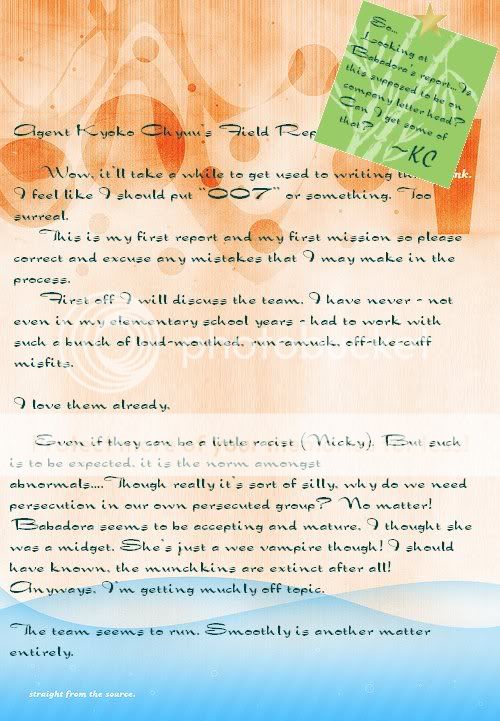 So...
Looking at
Babadora's report... Is
this supposed to be on
company letter head?
Can I get some of
that?
~KC
Agent Kyoko Chyuu's Field Rep
Wow, it'll take a while to get used to writing th
nk.
I feel like I should put "007" or something. Too
surreal.
This is my first report and my first mission so please
correct and excuse any mistakes that I may make in the
process.
First off I will discuss the team. I have never - not
even in my elementary school years - had to work with
such a bunch of loud-mouthed, run-amuck, off-the-cuff
misfits.
photobucket
I love them already.
Even if they can be a little racist (Nicky). But such
is to be expected, it is the norm amongst
abnormals....Though really it's sort of silly, why do we need
persecution in our own persecuted group? No matter!
Babadora seems to be accepting and mature, I thought she
was a midget. She's just a wee vampire though! I should
have known, the munchkins are extinct after all!
Anyways, I'm getting muchly off topic.
The team seems to run. Smoothly is another matter
entirely.
straight from the source.